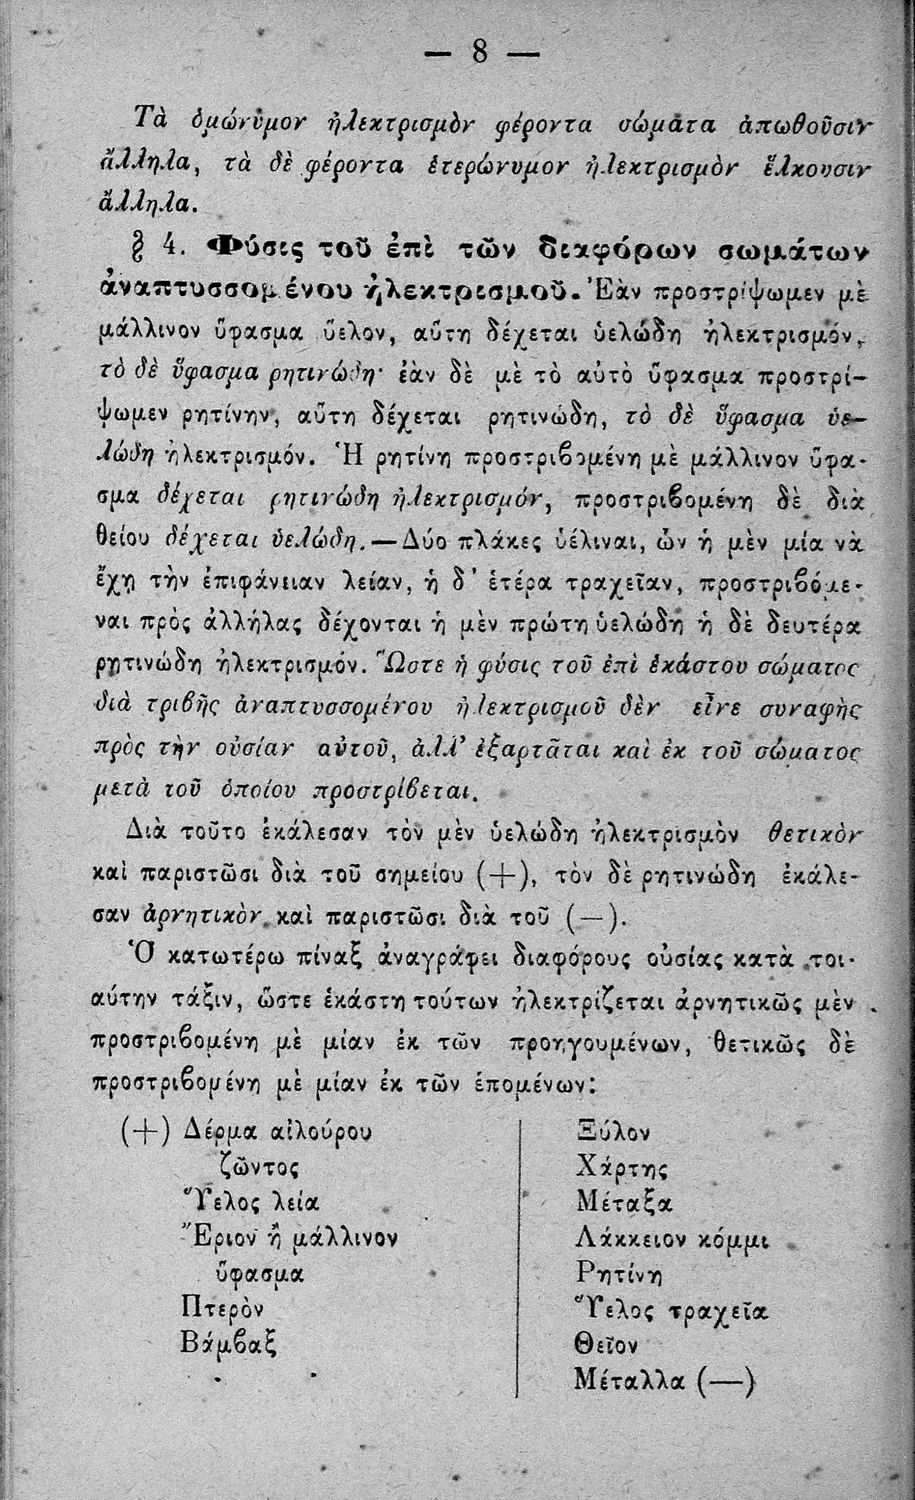 — 8 —
Τὰ ὁμώνυμον ἠλεκτρισμὸν φέροντα σώματα ἀπωθοῦσιν
ἄλληλα, τὰ δὲ φέροντα ἑτερώνυμον ἠλεκτρισμὸν ἕλκουσιν
ἄλληλα.
§ 4. Φύσις τοῦ ἐπὶ τῶν διαφόρων σωμάτων
ἀναπτυσσομένου ἠλεκτρισμοῦ. Ἐὰν προστρίψωμεν μὲ
μάλλινον ὕφασμα ὕελον, αὕτη δέχεται ὑελώδη ἠλεκτρισμόν,
τὸ δὲ ὕφασμα ῥητινώδη· ἐὰν δὲ μὲ τὸ αὐτὸ ὕφασμα προστρί-
ψωμεν ρητίνην, αὕτη δέχεται ρητινώδη, τὸ δὲ ὕφασμα ὑε-
λώδη ἠλεκτρισμόν. Ἡ ρητίνη προστριβομένη μὲ μάλλινον ὕφα-
σμα δέχεται ρητινώδη ἠλεκτρισμόν, προστριβομένη δὲ διὰ
θείου δέχεται ὑελώδη. — Δύο πλάκες ὑέλιναι, ὧν ἡ μὲν μία νὰ
ἔχῃ τὴν ἐπιφάνειαν λείαν, ἡ δ' ἑτέρα τραχεῖαν, προστριβόμε-
ναι πρὸς ἀλλήλας δέχονται ἡ μὲν πρώτη ὑελώδη ἡ δὲ δευτέρα
ρητινώδη ἠλεκτρισμόν. Ὥστε ἡ φύσις τοῦ ἐπὶ ἑκάστου σώματος
διὰ τριβῆς ἀναπτυσσομένου ἠλεκτρισμοῦ δὲν εἶνε συναφὴς
πρὸς τὴν οὐσίαν αὐτοῦ, ἀλλ' ἐξαρτᾶται καὶ ἐκ τοῦ σώματος
μετὰ τοῦ ὁποίου προστρίβεται.
Διὰ τοῦτο ἐκάλεσαν τὸν μὲν ὑελώδη ἠλεκτρισμὸν θετικὸν
καὶ παριστῶσι διὰ τοῦ σημείου (+), τὸν δὲ ρητινώδη ἐκάλε-
σαν ἀρνητικὸν καὶ παριστῶσι διὰ τοῦ (—).
Ὁ κατωτέρω πίναξ ἀναγράφει διαφόρους οὐσίας κατὰ τοι-
αύτην τάξιν, ὥστε ἑκάστη τούτων ἠλεκτρίζεται ἀρνητικῶς μὲν
προστριβομένη μὲ μίαν ἐκ τῶν προηγουμένων, θετικῶς δὲ
προστριβομένη μὲ μίαν ἐκ τῶν ἑπομένων:
(+) Δέρμα αἰλούρου
ζῶντος
Ὕελος λεία
Ἔριον ἢ μάλλινον
ὕφασμα
Πτερὸν
Βάμβαξ
Ξύλον
Χάρτης
Μέταξα
Λάκκειον κόμμι
Ρητίνη
Ὕελος τραχεῖα
Θεῖον
Μέταλλα (—)